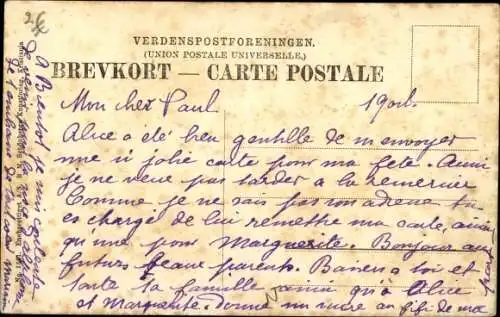 26
VERDENSPOSTFORENINGEN.
(UNION POSTALE UNIVERSELLE.)
BREVKORT — CARTE POSTALE
Mon cher Paul 19 Oct.
Alice a été bien gentille de m'envoyer
une si jolie carte pour ma fete. Aussi
je ne veux pas tarder a la remercier
Comme je ne sais pas son adresse tu
es chargé de lui remettre ma carte, ainsi
qu'une pour Marguerite. Bonjour aux
futurs beaux parents. Baisers a toi et
toute la famille ainsi qu'à Alice
et Marguerite. Donne un sucre au fifi de ma
part
A Bientot je suis contente
de venir
Je t'embrasse de tout coeur